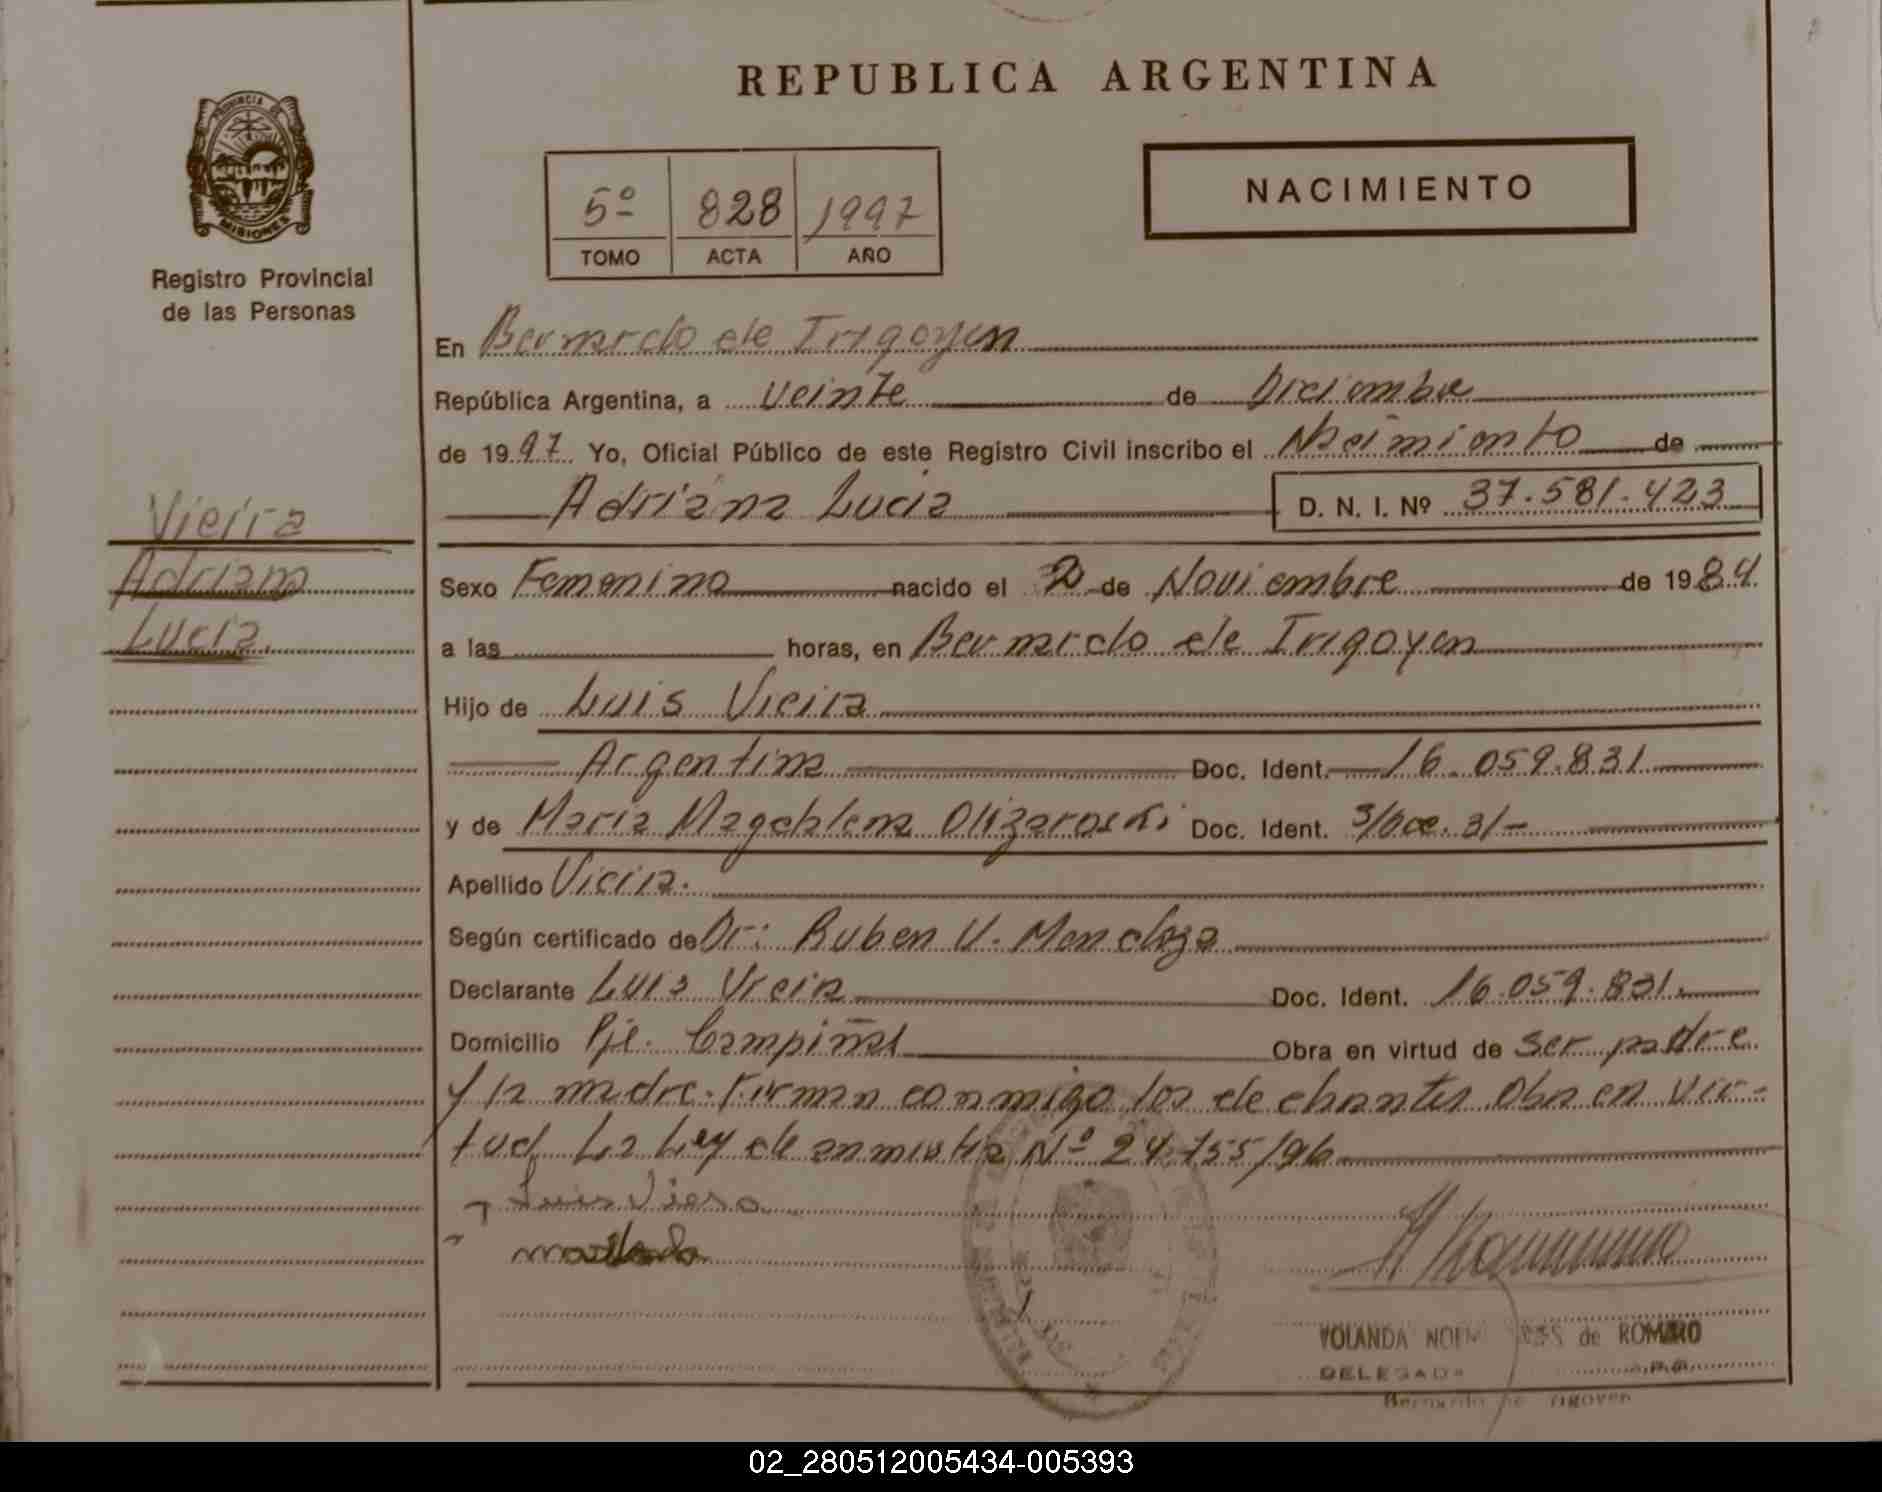 REPUBLICA ARGENTINA
PROVINCIA DE
MISIONES
Registro Provincial
de las Personas
5º 828 1997
TOMO ACTA AÑO
NACIMIENTO
En Bernardo de Irigoyen
República Argentina, a veinte de Diciembre
de 1997 Yo, Oficial Público de este Registro Civil inscribo el Nacimiento de
Adriana Lucia D. N. I. Nº 37.581.423
Vieira
Adriana
Lucia.
Sexo Femenino nacido el 2 de Noviembre de 1984
a las horas, en Bernardo de Irigoyen
Hijo de Luis Vieira
Argentina Doc. Ident. 16.059.831
y de Maria Magdalena Olizaroski Doc. Ident. 31-
Apellido Vieira.
Según certificado de Dr: Ruben V. Mendoza
Declarante Luis Vieira Doc. Ident. 16.059.831.
Domicilio Pje. Campiñas Obra en virtud de ser padre
y la madre. Firman conmigo los de Obra en vir-
tud La Ley de Nº 24.755/96
Luis Viera
YOLANDA de ROMERO
DELEGADA
Bernardo de Irigoyen
02_280512005434-005393